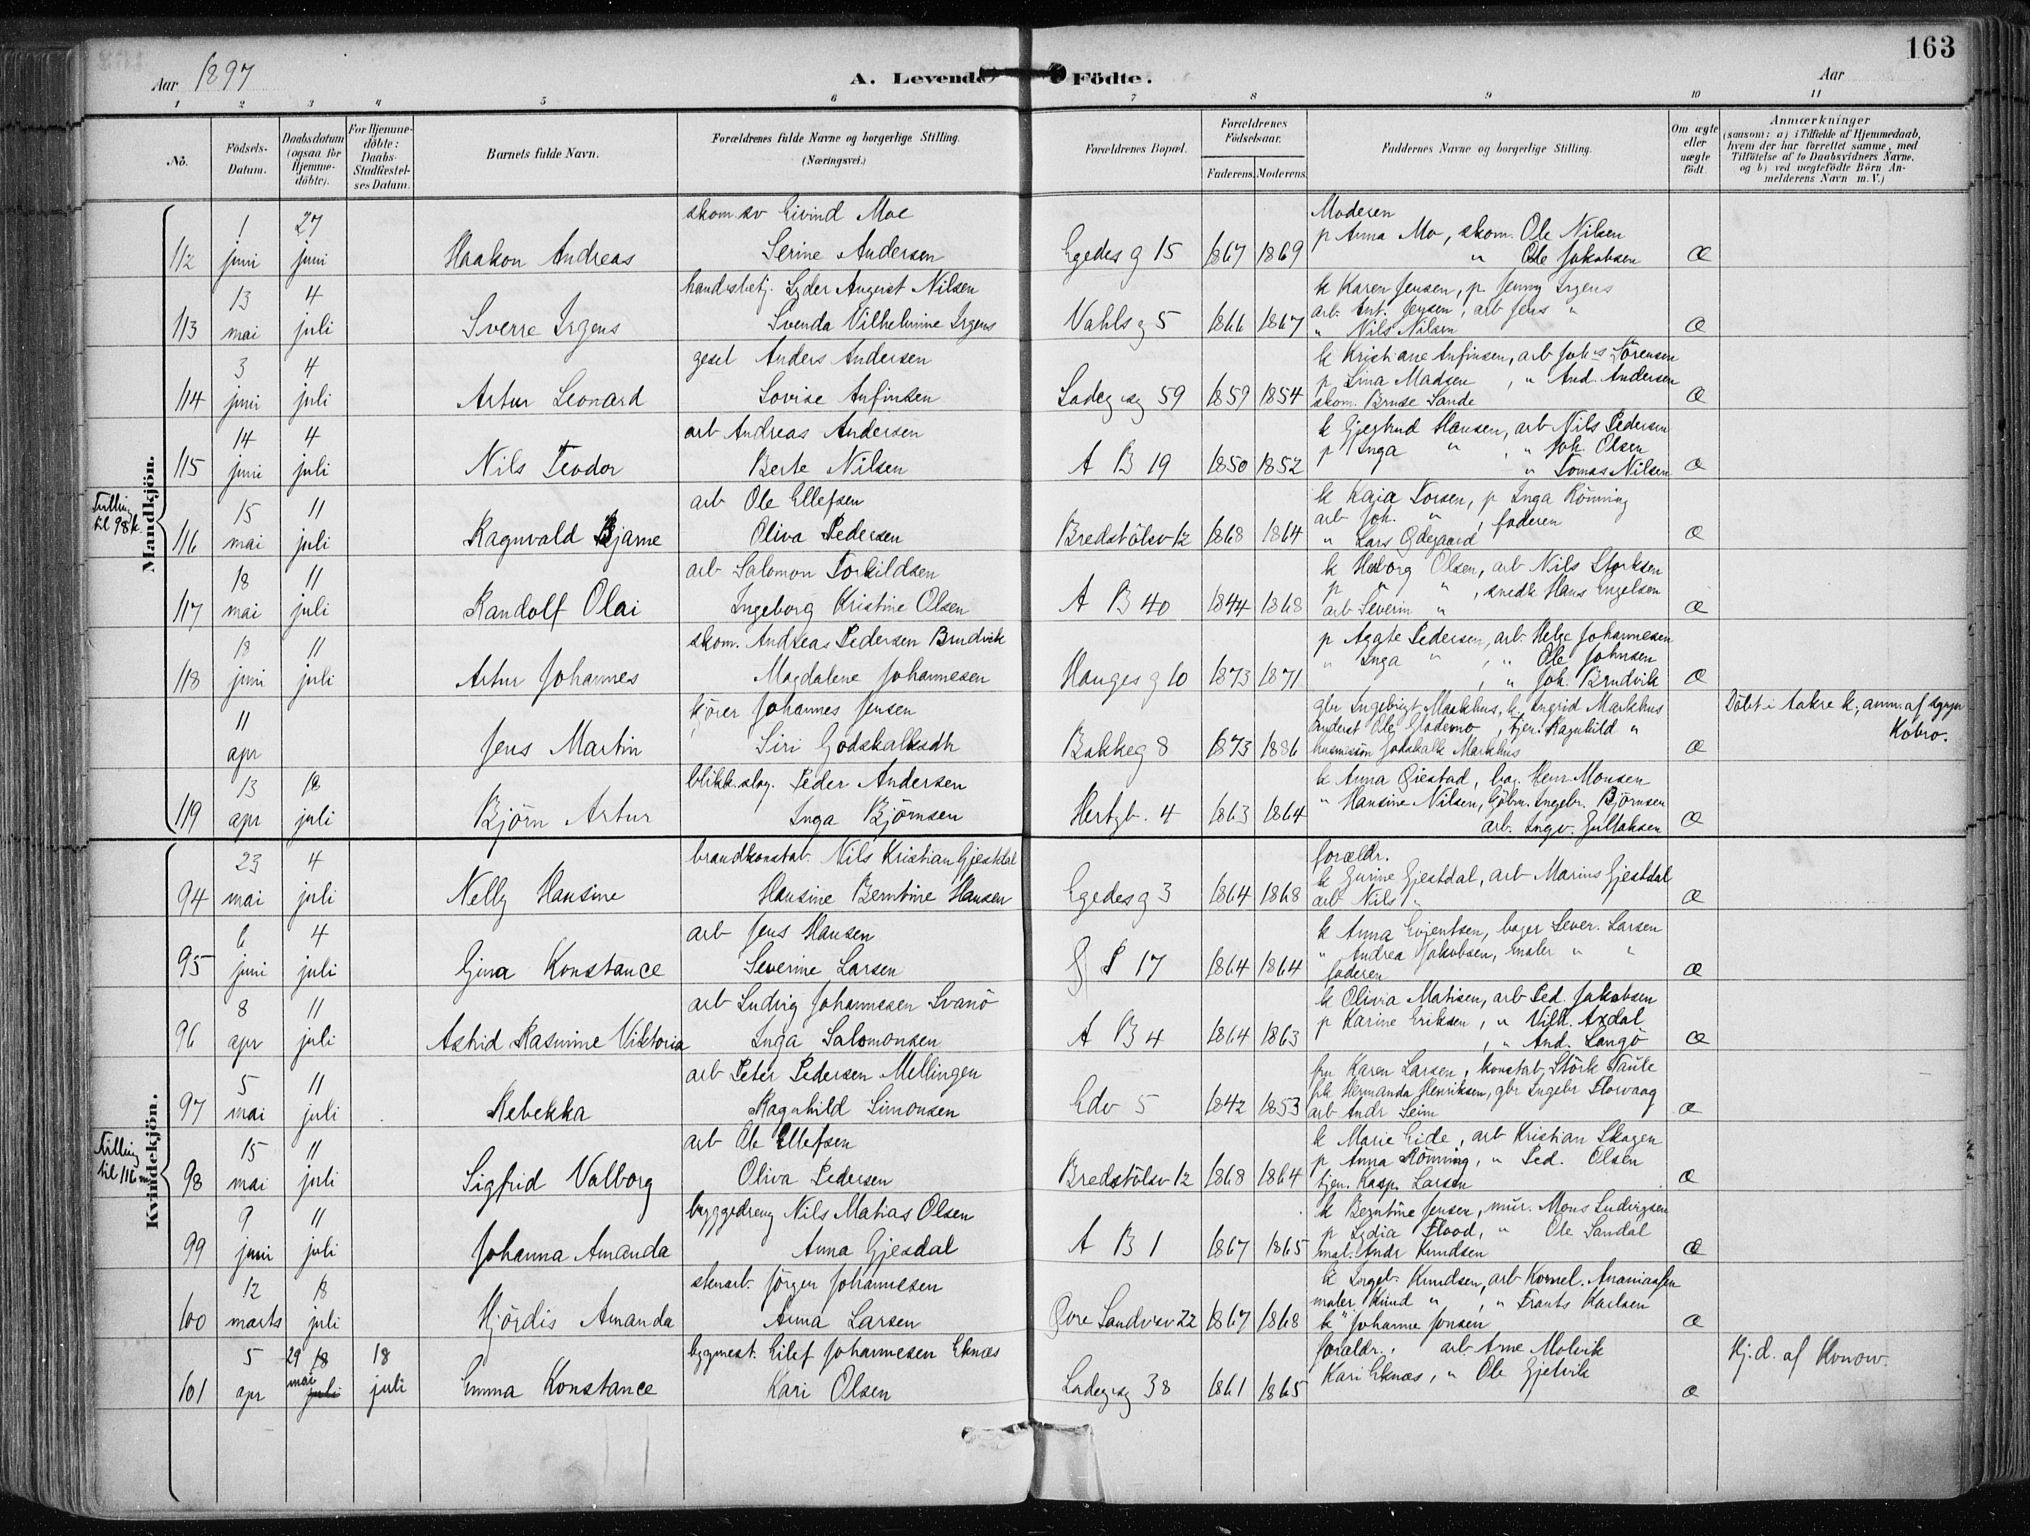 163
Aar 1897
A. Levende Födte.
Aar
1 2 3 4 5 6 7 8 9 10 11
No.
Födsels-Datum.
Daabsdatum (ogsaa for Hjemme-döbte).
For Hjemme-döbte: Daabs-Stadfæstel-ses Datum.
Barnets fulde Navn.
Forældrenes fulde Navne og borgerlige Stilling. (Næringsvei.)
Forældrenes Bopæl.
Forældrenes Födselsaar.
Faderens. Moderens.
Faddernes Navne og borgerlige Stilling.
Om ægte eller uægte födt.
Anmærkninger
(saasom: a) i Tilfælde af Hjemmedaab, hvem der har forrettet samme, med Tilföielse af to Daabsvidners Navne, og b) ved uægtefödte Börn An-melderens Navn m. V.)
Mandkjön.
112 1 juni 27 juni Haakon Andreas
skom.sv Eivind Moe
Serine Andersen
Egedes g 15 1867 1869
Moderen
p Anna Mo, skom. Ole Nilsen
" Ole Jakobsen Æ
113 13 mai 4 juli Sverre Irgens
handelsbetj. Lyder August Nilsen
Svenda Vilhelmine Irgens
Vahls g 5 1866 1867
k Karen Jensen, p Jenny Irgens
arb. Ant. Jensen, arb Jens "
" Nils Nilsen Æ
114 3 juni 4 juli Artur Leonard
gesel Anders Andersen
Lovise Anfinsen
Ladeg.sg 59 1859 1854
k Kristiane Anfinsen, arb Johs Sörensen
p Lina Madsen, " And. Andersen
skom. Bruse Sande Æ
115 14 juni 4 juli Nils Teodor
arb Andreas Andersen
Berte Nilsen
A B 19 1850 1852
k Gjertrud Hansen, arb Nils Pedersen
p Inga ", " Joh. Olsen
" Tomas Nilsen Æ
Tvilling til 98 k.
116 15 mai 11 juli Ragnvald Bjarne
arb Ole Ellefsen
Oliva Pedersen
Bredstölsv 12 1868 1864
k Kaia Torsen, p Inga Rönning
arb Joh. ", faderen
" Lars Ödegaard Æ
117 18 mai 11 juli Randolf Olai
arb Salomon Torkildsen
Ingeborg Kristine Olsen
A B 40 1844 1868
k Heborg Olsen, arb Nils Storksen
p " ", snedk Hans Engelsen
arb Severin " Æ
118 18 juni 11 juli Artur Johannes
skom. Andreas Pedersen Brudvik
Magdalene Johannesen
Hauges g 10 1873 1871
p Agate Pedersen, arb Helge Johannesen
" Inga ", " Ole Johnsen
, " Joh. Brudvik Æ
11 apr Jens Martin
kjörer Johannes Jensen
Siri Godskalksdtr
Bakkeg 8 1873 1886
gbr Ingebrigt Markhus, k. Ingrid Markhus
Ole Gjademo, tjen. Ragnhild "
husmsön Godskalk Markhus Æ
Döbt i Aakre k., anm. af sgpr Kobro.
119 13 apr 18 juli Björn Artur
blikk.slag. Peder Andersen
Inga Björnsen
Hertzb. 4 1863 1864
k Anna Öiestad, bag. Henr Monsen
" Hansine Nilsen, Ingebr. Björnsen
arb. Ingv. Gullaksen Æ
Kvindekjön.
94 23 mai 4 juli Nelly Hansine
brandkonstab. Nils Kristian Gjestdal
Hansine Berntine Hansen
Egedes g 3 1864 1868
forældr.
k Gurine Gjestdal, arb Marius Gjestdal
arb Nils " Æ
95 6 juni 4 juli Gina Konstance
arb Jens Hansen
Severine Larsen
S 17 1864 1864
k Anna Evjentsen, bager Sever. Larsen
" Andrea Jakobsen, maler " "
faderen Æ
96 8 apr 11 juli Astrid Rasmine Viktoria
arb Ludvig Johannesen Svanö
Inga Salomonsen
A B 4 1864 1863
k Olivia Matisen, arb Ped. Jakobsen
p Karine Eriksen, " Vilh. Axdal
, " And. Langö Æ
97 5 mai 11 juli Rebekka
arb Peter Pedersen Mellingen
Ragnhild Simonsen
Edv 5 1842 1853
fru Karen Larsen, konstab Störk Taule
frk Hermanda Henriksen, gbr Ingebr Florvaag
arb Andr Seim Æ
Tvilling til 116 m
98 15 mai 11 juli Sigfrid Valborg
arb Ole Ellefsen
Oliva Pedersen
Bredstölsv 12 1868 1864
k Marie Eide, arb Kristian Skagen
p Anna Rönning, " Ped. Olsen
tjen. Kasp. Larsen Æ
99 9 juni 11 juli Johanna Amanda
byggedreng Nils Matias Olsen
Anna Gjesdal
A B 1 1867 1865
k Berntine Jensen, mur. Mons Ludvigsen
p Lydia Flood, " Ole Sandal
mat. Andr Knudsen Æ
100 12 marts 18 juli Hjördis Amanda
stenarb. Jörgen Johannesen
Anna Larsen
Övre Sandvikv 22 1867 1868
k Ingeb. Knudsen, arb Kornel. Ananiassen
maler Knud ", " Frants Karlsen
k " Johanne Jonsen Æ
101 5 apr 29 mai 18 juli 18 juli Emma Konstance
bygmest. Eilef Johannesen Eknæs
Kari Olsen
Ladeg.sg 38 1861 1865
forældr. arb Arne Molvik
Kari Eknæs, " Ole Gjelvik Æ
Hj.d. af Konow.